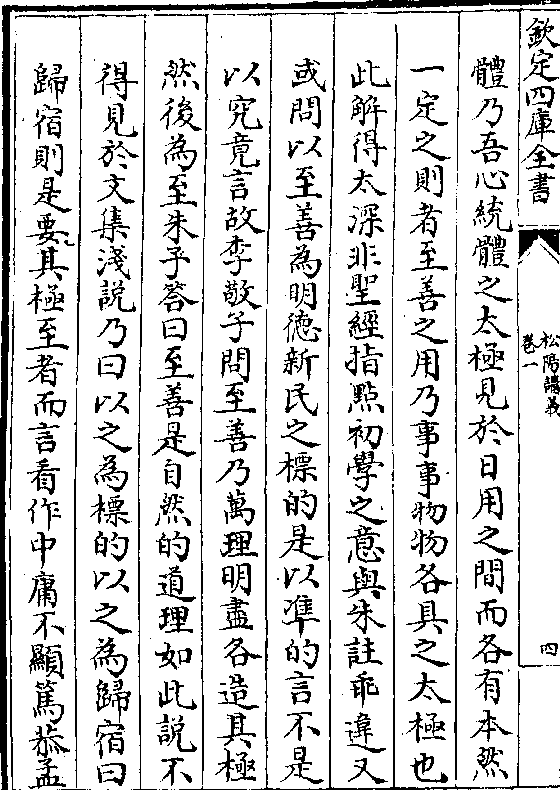 欽定四庫全書
松陽講義
卷一
四
體乃吾心統體之太極見於日用之間而各有本然
一定之則者至善之用乃事事物物各具之太極也
此解得太深非聖經指點初學之意與朱註乖違又
或問以至善為明德新民之標的是以準的言不是
以究竟言故李敬子問至善乃萬理明盡各造其極
然後為至朱子答曰至善是自然的道理如此說不
得見於文集淺說乃曰以之為標的以之為歸宿曰
歸宿則是要其極至者而言看作中庸不顯篤恭孟